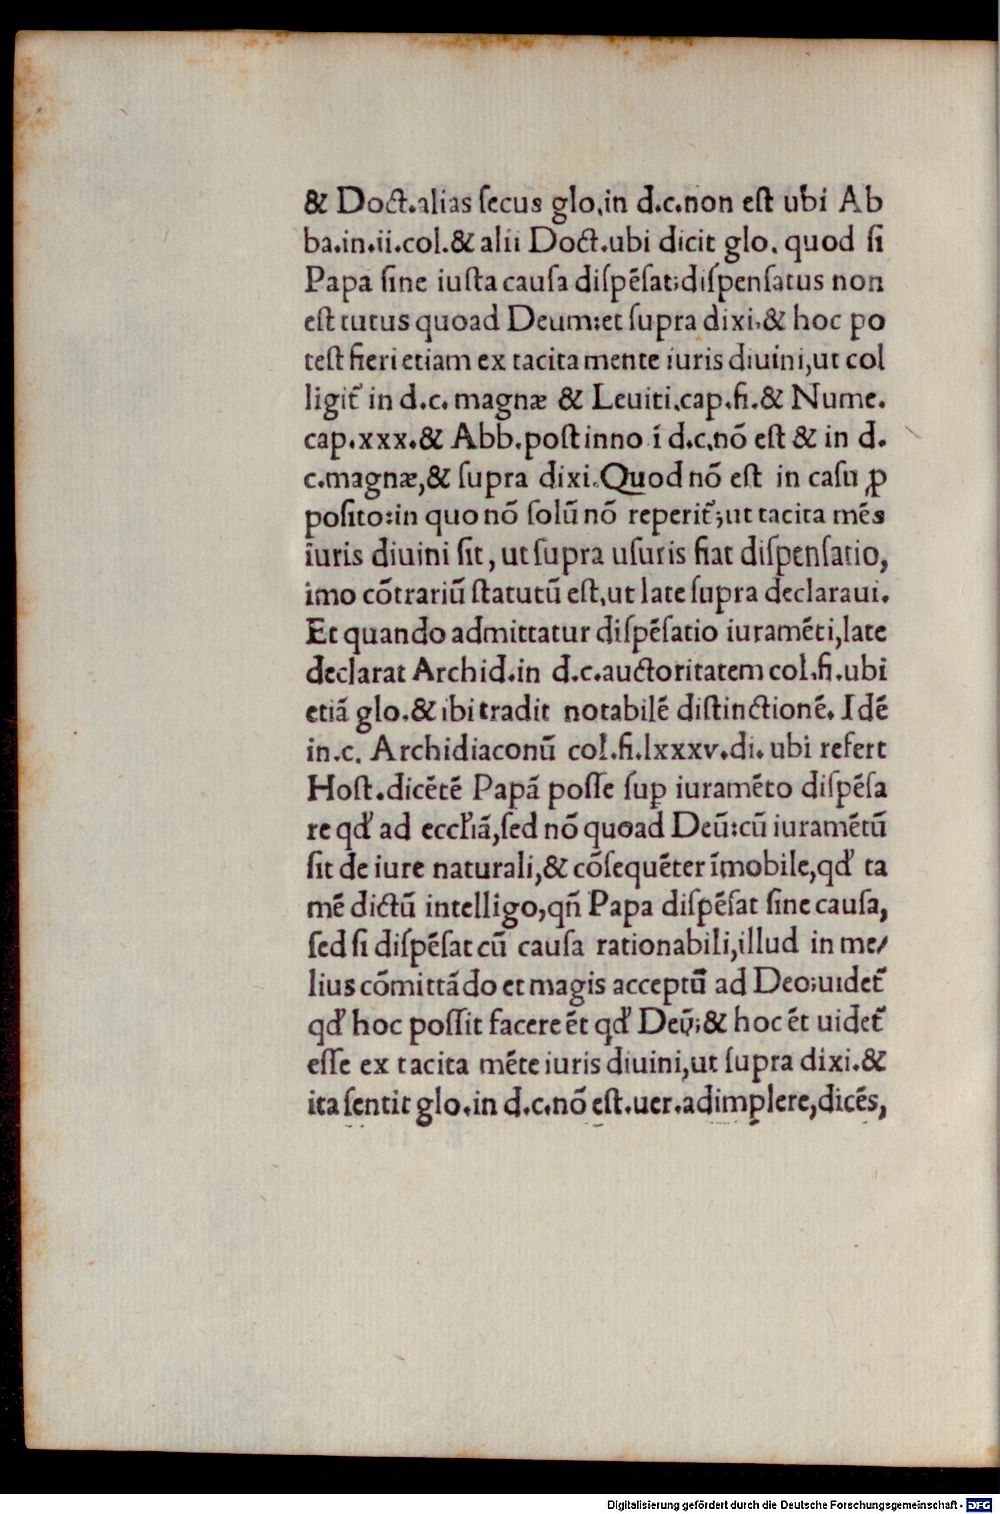 & Doct.alias ſecus glo.in d.c.non eſt ubi Ab
ba.in.ii.col.& alii Doct.ubi dicit glo. quod ſi
Papa ſine iuſta cauſa diſpēſat;diſpenſatus non
eſt tutus quoad Deum:et ſupra dixi.& hoc po
teſt fieri etiam ex tacita mente iuris diuini,ut col
ligit᷑ in d.c. magnæ & Leuiti.cap.fi.& Nume.
cap.xxx.& Abb.poſt inno ī d.c.nō eſt & in d.
c.magnæ,& ſupra dixi.Quod nō eſt in caſu ꝓ
poſito:in quo nō ſolū nō reperit᷑;ut tacita mēs
iuris diuini ſit, ut ſupra uſuris fiat diſpenſatio,
imo cōtrariū ſtatutū eſt,ut late ſupra declaraui.
Et quando admittatur diſpēſatio iuramēti,late
declarat Archid.in d.c.auctoritatem col.fi.ubi
etiā glo.& ibi tradit notabilē diſtinctionē. Idē
in.c. Archidiaconū col.fi.lxxxv.di. ubi refert
Hoſt.dicētē Papā poſſe ſup iuramēto diſpēſa
re qd' ad eccl'iā,ſed nō quoad Deū:cū iuramētū
ſit de iure naturali,& cōſequēter īmobile,qd' ta
mē dictū intelligo,qn̄ Papa diſpēſat ſine cauſa,
ſed ſi diſpēſat cū cauſa rationabili,illud in me/
lius cōmittādo et magis acceptū ad Deo;uidet᷑
qd' hoc poſſit facere ēt qd' Deū;& hoc ēt uidet᷑
eſſe ex tacita mēte iuris diuini,ut ſupra dixi.&
ita ſentit glo.in d.c.nō eſt.uer.adimplere,dicēs,
Digitalisierung gefördert durch die Deutsche Forschungsgemeinschaft - DFG